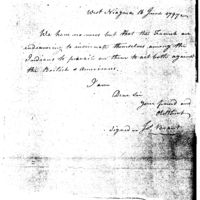 West Niagara 16 June 1797
We have no news but that the French are
endeavoring to insinuate themselves among the
Indians to prevail on them to act both against
the British & Americans.
I am
Dear Sir
Your friend and
Signed Jos Brant